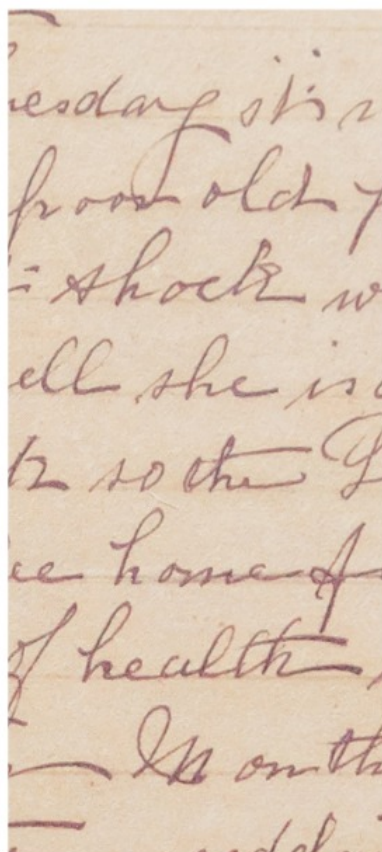 esday it's
poor old
shock w
ell she is
so the
home f
of health
Month